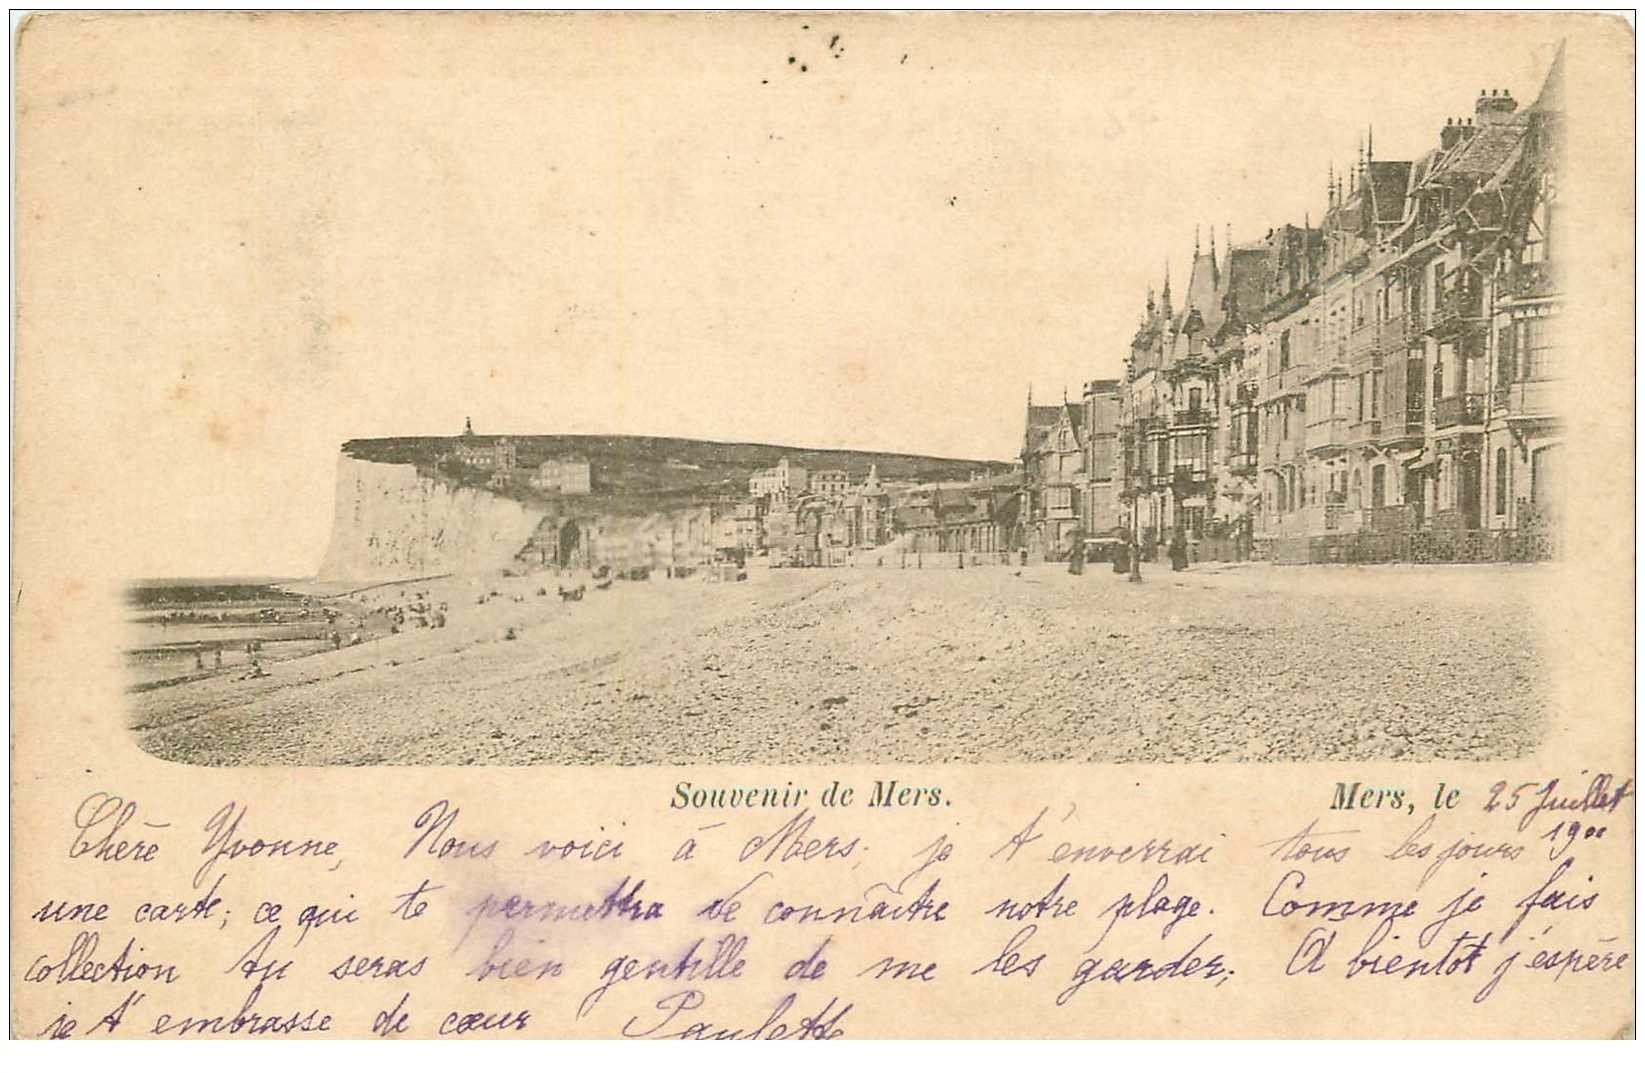 Souvenir de Mers.
Mers, le 25 Juillet
1900
Chère Yvonne, Nous voici à Mers; je t'enverrai tous les jours
une carte; ce qui te permettra de connaître notre plage. Comme je fais
collection tu seras bien gentille de me les garder; A bientôt j'espère
je t'embrasse de cœur Paulette